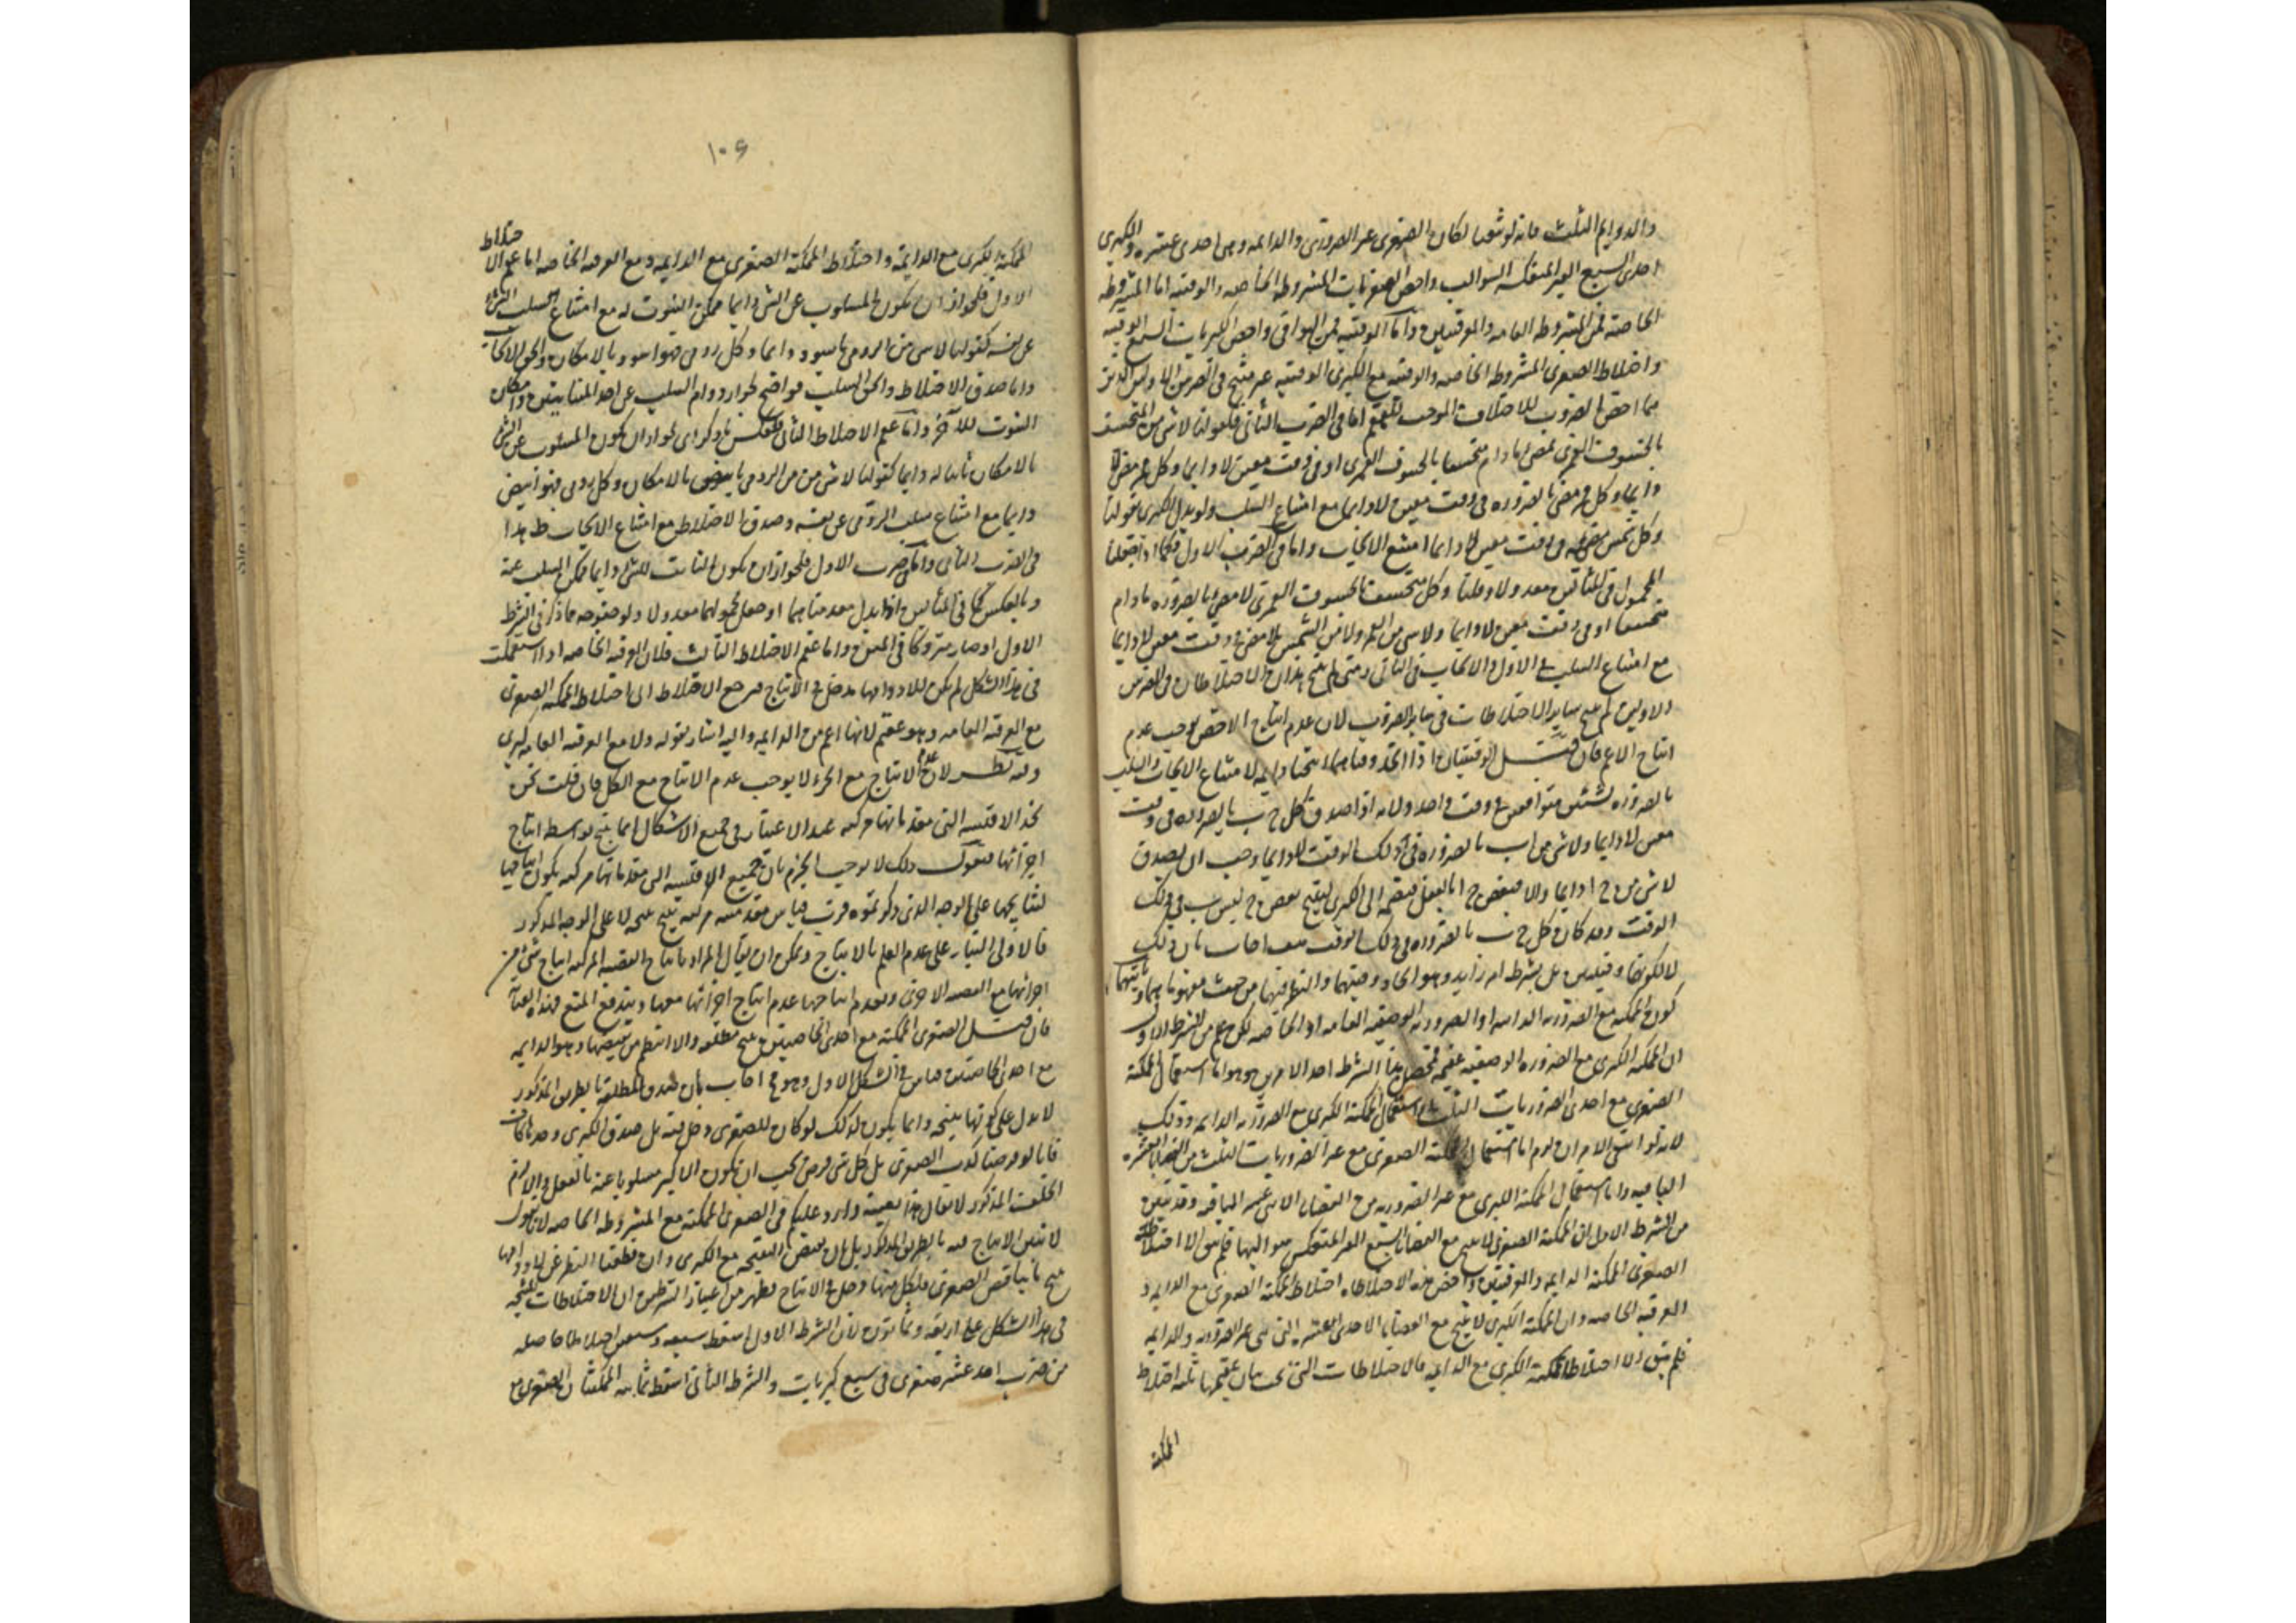 والدوايم الثلث فانه لو انتفيا لكان الصغرى غير الضرورى والدايمه وهى احدى عشره والكبرى
احدى السبع الغير المنعكسة السوالب واخص الصغريات المشروطه الخاصه والوقتيه اما المشروطه
الخاصة فمن المشروطه العامه والوقتيتين واما الوقتيه فمن البواقى واخص الكبريات السبع الوقتيه
واختلاط الصغرى المشروطه الخاصه والوقتيه مع الكبرى الوقتيه غير منتج فى الضربين الاولين اللذين
هما اخص الضروب للاختلاف الموجب للعقم اما فى الضرب الثانى فلقولنا لاشى من المنخسف
بالخسوف القمرى بمضى مادام منخسفا بالخسوف القمرى او فى وقت معين لا دايما وكل قمر مضى
دايما وكل قمر مضى بالضروره فى وقت معين لا دايما مع امتناع السلب ولو بدل الكبرى بقولنا
وكل شمس مضى فى وقت معين لا دايما امتنع الايجاب واما فى الضرب الاول فكما اذا جعلنا
المحمول فى المثالين معدولا وقلنا وكل منخسف بالخسوف القمرى لا مضى بالضروره مادام
منخسفا او فى وقت معين لا دايما ولاشى من القمر ولا من الشمس بلا مضى فى وقت معين لا دايما
مع امتناع السلب فى الاول والايجاب فى الثانى ومتى لم ينتج هذان الاختلاطان فى الضربين
الاولين لم ينتج ساير الاختلاطات فى ساير الضروب لان عدم انتاج الاخص يوجب عدم
انتاج الاعم فان قيل الوقتيتان اذا اتحد وقتاهما انتجتا دايمه لامتناع الايجاب والسلب
بالضروره لشيئين متوافقين فى وقت واحد ولانه اذا صدق كل ج ب بالضروره فى وقت
معين لا دايما ولاشى من ا ب بالضروره فى ذلك الوقت لا دايما وجب ان يصدق
لاشى من ج ا دايما والا فبعض ج ا بالفعل فيضم الى الكبرى لينتج بعض ج ليس ب فى ذلك
الوقت وقد كان كل ج ب بالضروره فى ذلك الوقت هف اجاب بان ذلك
لا لكونهما وقتيتين بل بشرط امر زايد وهو اتحاد وقتيهما والنظر فيهما من حيث مفهوماهما
كون الممكنه مع الضروريه الدايمه او الضروريه الوصفيه العامه او الخاصه لكن علم من الشرط الاول
ان الممكنه الكبرى مع الضروره الوصفيه عقيمه فمحصل هذا الشرط احد الامرين وهو اما استعمال الممكنة
الصغرى مع احدى الضروريات الثلث او استعمال الممكنة الكبرى مع الضروريه الدايمه وذلك
لانه لو انتفى الامران لزم اما استعمال الممكنة الصغرى مع غير الضروريات الثلث من القضايا العشره
الباقيه واما استعمال الممكنة الكبرى مع غير الضروريه من القضايا الاثنى عشر الباقيه وقد تبين
من الشرط الاول ان الممكنة الصغرى لا تنتج مع القضايا السبع الغير المنعكس سوالبها فلم يبق الا اختلاط
الصغرى الممكنة الدايمه والعرفيتين واخص هذه الاختلاطات اختلاط الممكنة الصغرى مع الدايمه و
العرفيه الخاصه وان الممكنة الكبرى لا تنتج مع القضايا الاحدى العشره التى هى غير الضروريه والدايمه
فلم يبق الا اختلاط الممكنة الكبرى مع الدايمه فالاختلاطات التى تجب بيان عقمها ثلثه اختلاط
الممكنة
١٠٦
الممكنة الكبرى مع الدايمة واختلاط الممكنة الصغرى مع الدايمه ومع العرفيه الخاصه اما عقم الاختلاط
الاول فلجواز ان يكون المسلوب عن الشى دايما ممكن الثبوت له مع امتناع سلب الشى
عن نفسه كقولنا لاشى من الرومى باسود دايما وكل رومى فهو اسود بالامكان والحق الايجاب
واما صدق الاختلاط والحق السلب فواضح لجواز دوام السلب عن احد المتباينين وامكان
الثبوت للآخر واما عقم الاختلاط الثانى فبعكس ما ذكر اى لجواز ان يكون المسلوب عن الشى
بالامكان ثابتا له دايما كقولنا لاشى من الرومى بابيض بالامكان وكل رومى فهو ابيض
دايما مع امتناع سلب الرومى عن نفسه وصدق الاختلاط مع امتناع الايجاب ظ هذا
فى الضرب الثانى واما فى الضرب الاول فلجواز ان يكون الثابت للشى دايما ممكن السلب عنه
وبالعكس كما فى المثالين اذا بدل مقدمتاهما او جعل محمولهما معدولا ولو ضم وجه ما ذكر فى الشرط
الاول او صار متروكا فى المتن واما عقم الاختلاط الثالث فلان العرفيه الخاصه اذا استعملت
فى هذا الشكل لم يكن للادوامها مدخل فى الانتاج فيرجع الاختلاط الى اختلاط الممكنة الصغرى
مع العرفيه العامه وهو عقيم لانها اعم من الدايمه واليه اشار بقوله ولا مع العرفيه العامه كبرى
وفيه نظر لان عدم الانتاج مع الجزء لا يوجب عدم الانتاج مع الكل فان قلت نحن
نجد الاقيسه التى مقدماتها مركبه عند الاعتبار فى جميع الاشكال انما ينتج بواسطه انتاج
اجزائها فنقول ذلك لا يوجب الجزم بان جميع الاقيسه التى مقدماتها مركبه يكون انتاجها
لنتايجها على الوجه الذى ذكرتموه فرب قياس مقدمته مركبه ينتج نتيجه لا على الوجه المذكور
فالاولى البناء على عدم العلم بالانتاج ويمكن ان يقال المراد بانتاج القضيه المركبه انتاج شى من
اجزائها مع القضيه الاخرى وبعدم انتاجها عدم انتاج اجزائها معها ويندفع المنع بهذه العنايه
فان قيل الصغرى الممكنه مع احدى الخاصيتين ينتج مطلقه والا انتظم من نقيضها وهو الدايمه
مع احدى الخاصتين قياس فى الشكل الاول وهو مح اجاب بان صدق المطلقة بالطريق المذكور
لا يدل على كونها نتيجه وانما يكون كذلك لو كان للصغرى دخل فيه بل صدق الكبرى وحدها كاف
فانا لو فرضنا كذب الصغرى بل كل شى فرض يجب ان يكون الاكبر مسلوبا عنه بالفعل والا لزم
الخلف المذكور لا يقال هذا بعينه وارد عليكم فى الصغرى الممكنه مع المشروطه الخاصه لانا نقول
لا نبين الانتاج فيه بالطريق المذكور بل بان نقيض النتيجه مع الكبرى وان قطعنا النظر عن لادوامها
ينتج ما يناقض الصغرى فلكل منهما دخل فى الانتاج فظهر من اعتبار الشرطين ان الاختلاطات المنتجه
فى هذا الشكل على اربعة وثمانون لان الشرط الاول اسقط سبعه وسبعين اختلاطا حاصله
من ضرب احد عشر صغرى فى سبع كبريات والشرط الثانى اسقط ثمانيه الممكنتان الصغرى مع